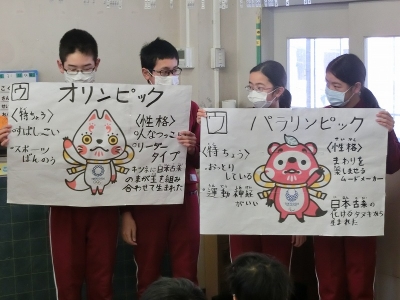 ウ オリンピック
<特ちょう>
・すばしこい
・スポーツ
ばんのう
<性格>
○人なつっこい
○リーダー
タイプ
キツネに日本古来
のまが玉を組み
合わせて生まれた
ウ パラリンピック
<特ちょう>
・おっとり
している
・運動神経
がいい
<性格>
まわりを
楽しませる
ムードメーカー
日本古来の
化けるタヌキから
生まれた